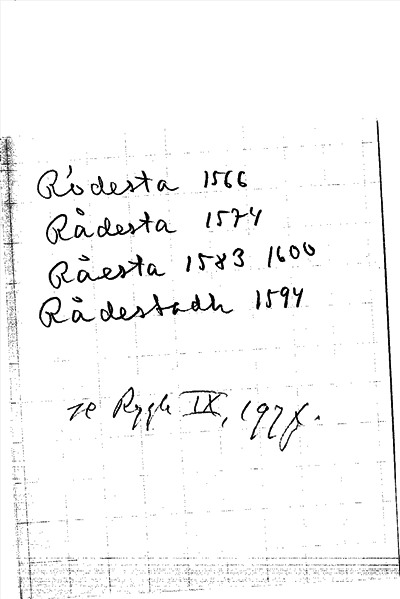 Ródesta 1566
Rådesta 1574
Råesta 1583 1600
Rådestadh 1594
se Rygh IX,